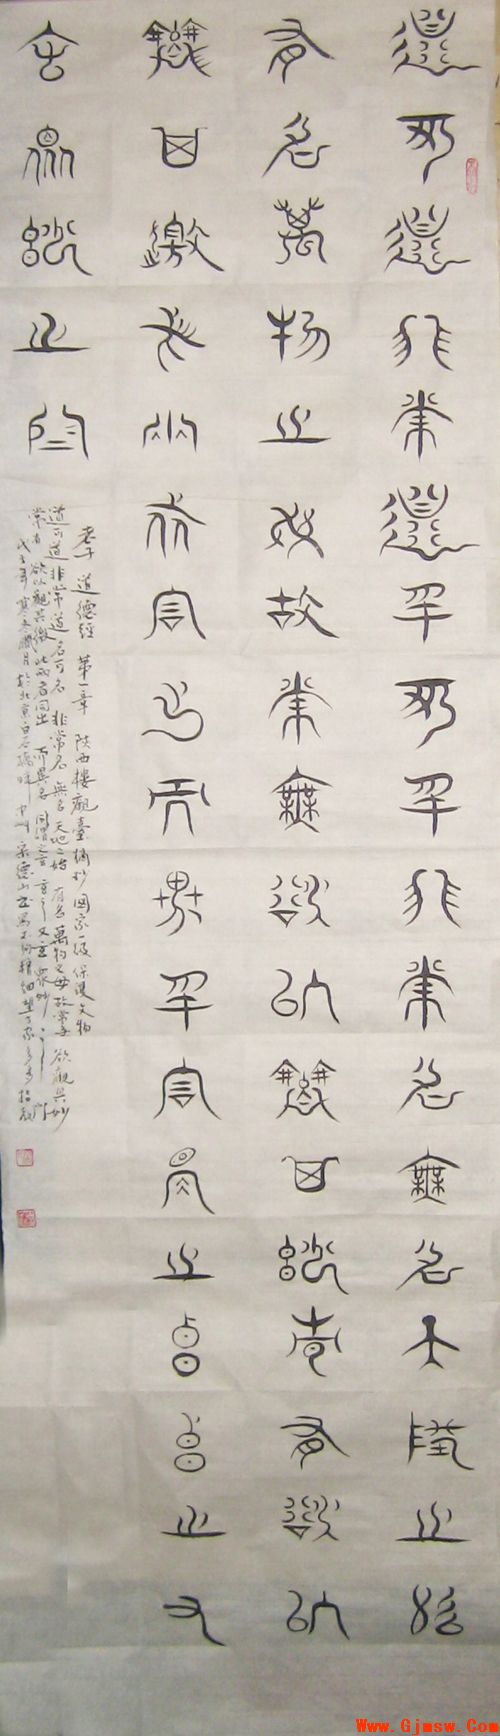 道可道非常道名可名非常名無名天地之始
有名萬物之母故常無欲以觀其妙常有欲以
觀其徼此兩者同出而異名同謂之玄玄之又
玄眾妙之門
老子 道德經 第一章 陝西樓觀臺摘抄 國家一級保護文物
道可道非常道名可名 非常名 無名天地之始 有名萬物之母故常無 欲觀其妙
常有欲以觀其徼此兩者同出而異名同謂之玄玄之又玄眾妙之門
戊子年寒冬臘月於北京白石橋 宋德山書寫不夠精細望大家多多指教
Www.Gjmsw.Com